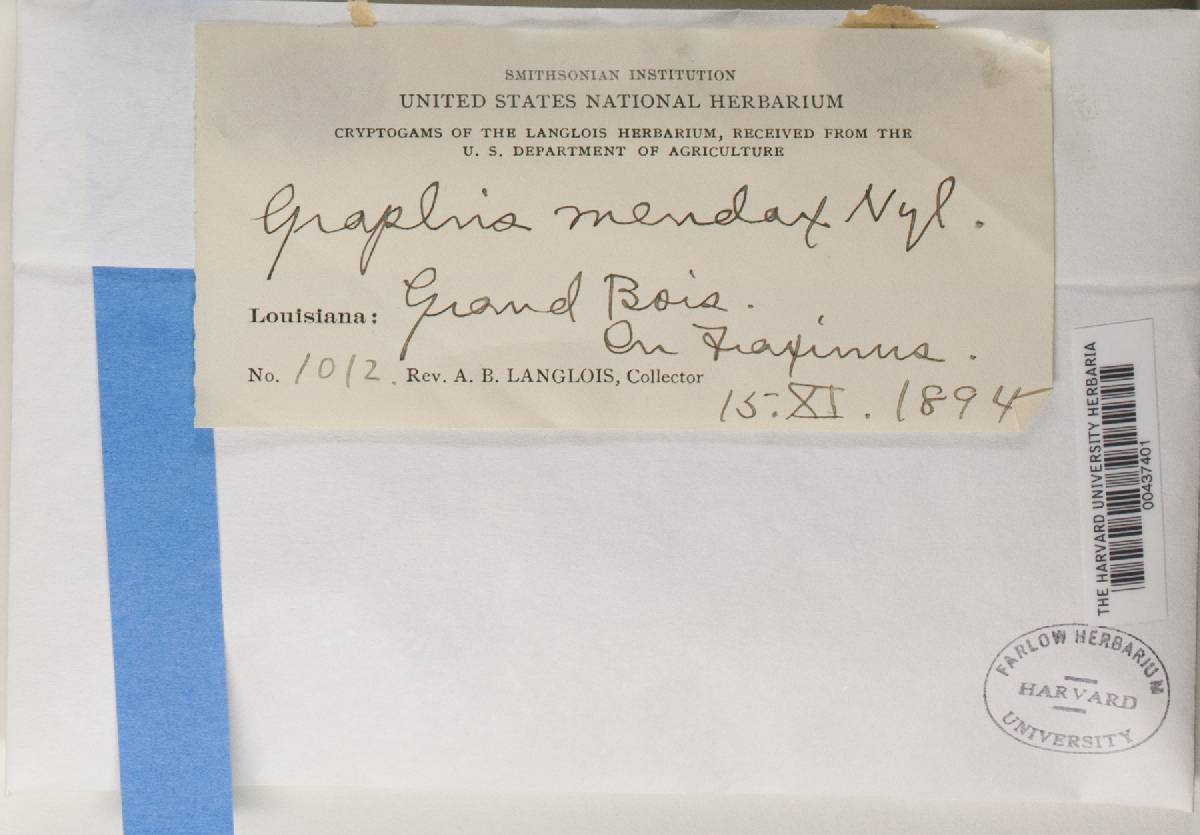 SMITHSONIAN INSTITUTION
UNITED STATES NATIONAL HERBARIUM
CRYPTOGAMS OF THE LANGLOIS HERBARIUM, RECEIVED FROM THE
U. S. DEPARTMENT OF AGRICULTURE
Graphis mendax Nyl.
Louisiana: Grand Bois.
On Fraxinus.
No. 1012. Rev. A. B. LANGLOIS, Collector
15.XI.1894
THE HARVARD UNIVERSITY HERBARIA
00437401
FARLOW HERBARIUM
HARVARD
UNIVERSITY